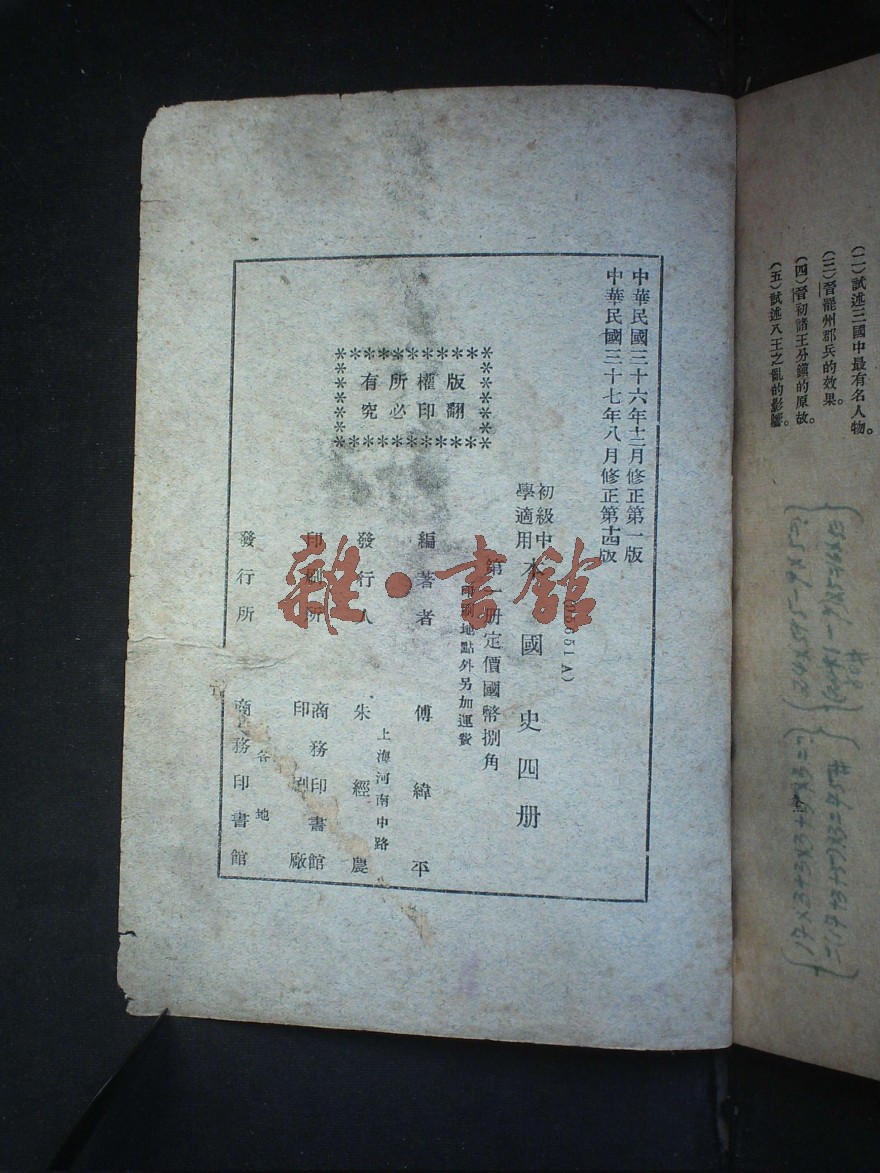 (二)試述三國中最有名人物。
(三)晉罷州郡兵的效果。
(四)晉初諸王分鎮的原故。
(五)試述八王之亂的影響。
中華民國三十六年十二月修正第一版
中華民國三十七年八月修正第十四版
初級中學適用
本國史四册
第一册定價國幣捌角
印刷地點外另加運費
版權所有
翻印必究
編著者 傅緯平
上海河南中路
發行人 朱經農
印刷所 商務印書館印刷廠
各地
發行所 商務印書館
雜·書館